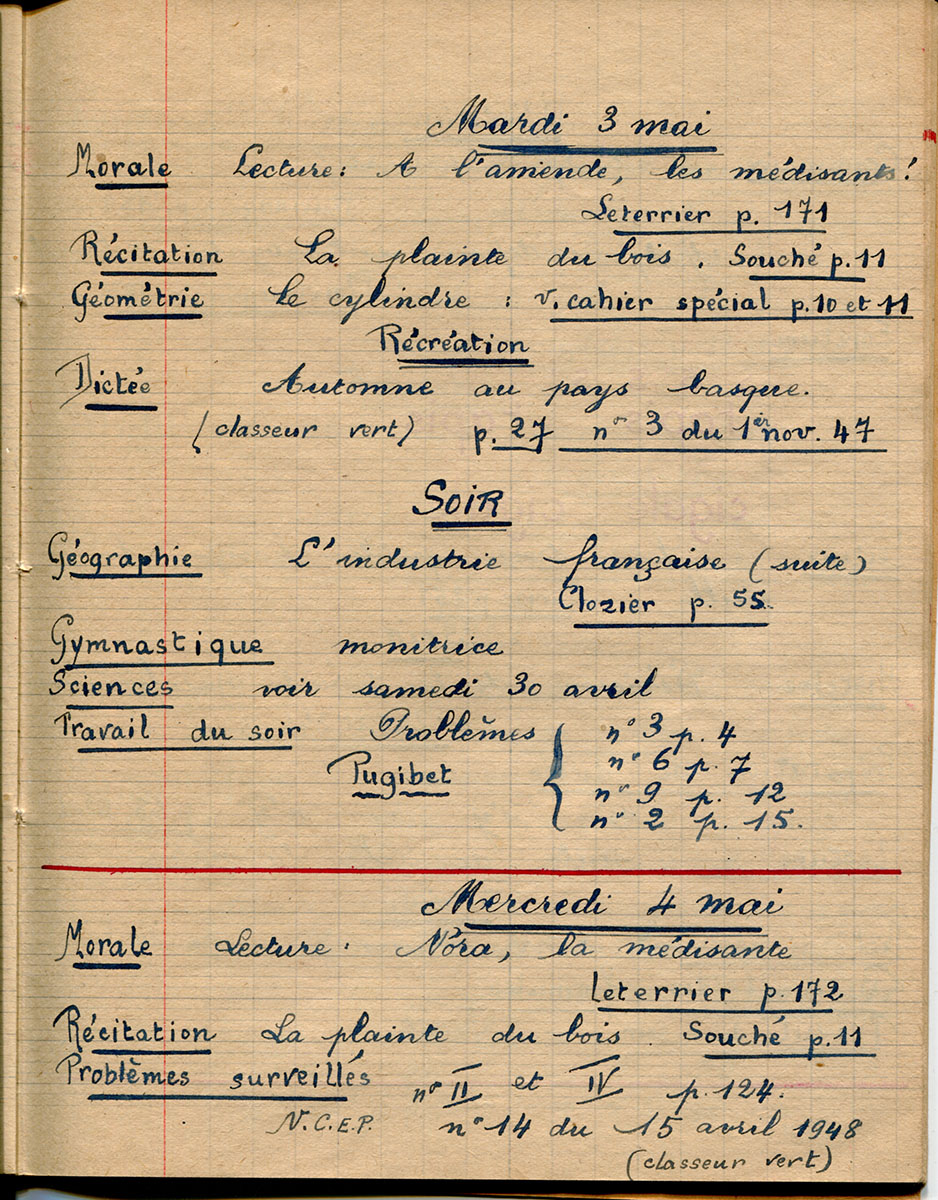 Mardi 3 mai
Morale Lecture: A l'amende, les médisants!
Leterrier p. 171
Récitation La plainte du bois. Souché p.11
Géométrie Le cylindre : v. cahier spécial p.10 et 11
Récréation
Dictée Automne au pays basque.
(classeur vert) p. 27 n° 3 du 1er nov. 47
SOIR
Géographie L'industrie française (suite)
Clozier p. 55.
Gymnastique monitrice
Sciences voir samedi 30 avril
Travail du soir Problèmes { n° 3 p. 4
n° 6 p. 7
Pugibet
n° 9 p. 12
n° 2 p. 15.
Mercredi 4 mai
Morale Lecture: Nora, la médisante
Leterrier p. 172
Récitation La plainte du bois. Souché p.11
Problèmes surveillés n° II et IV p. 124.
N.C.E.P. n° 14 du 15 avril 1948
(classeur vert)